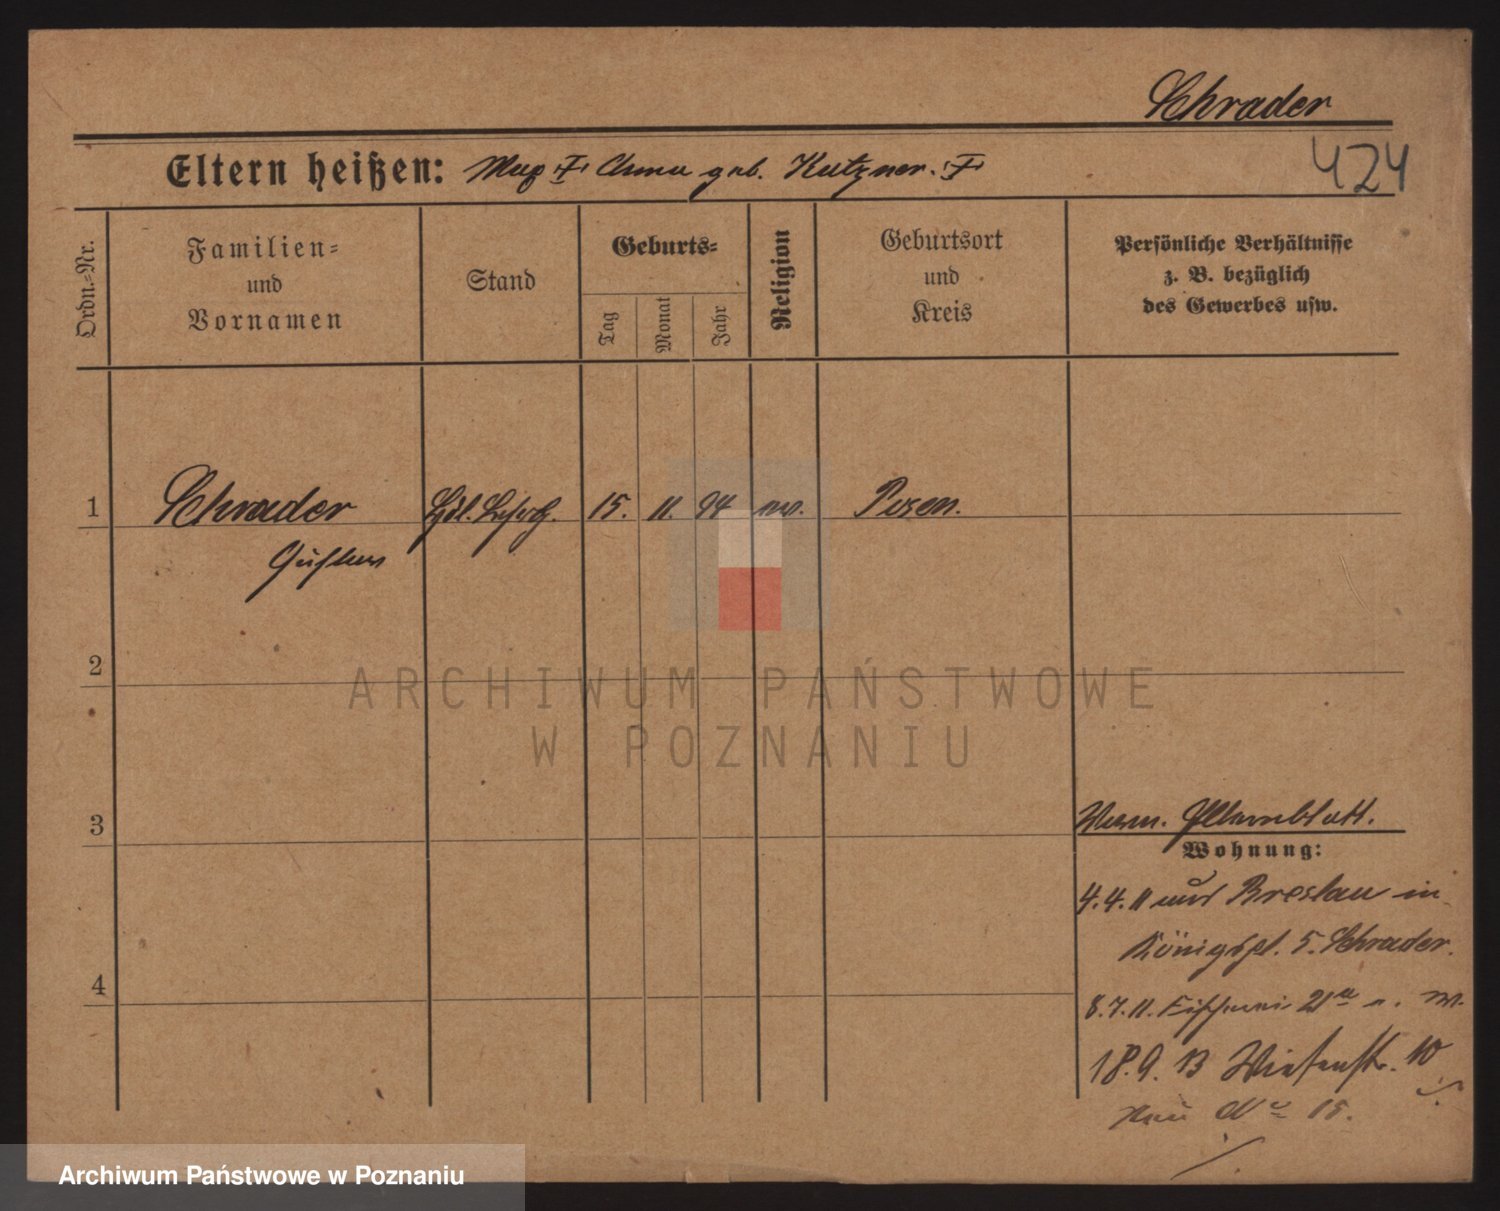 Schrader
424
Eltern heißen: Max Anna geb. Kutzner.
Ordn.-Nr.
Familien-
und
Vornamen
Stand
Geburts-
Tag
Monat
Jahr
Religion
Geburtsort
und
Kreis
Persönliche Verhältnisse
z. B. bezüglich
des Gewerbes usw.
1 Schrader 15. 11. 94 ev. Posen.
Gustav
2
ARCHIWUM PAŃSTWOWE
W POZNANIU
3
Elternblatt.
Wohnung:
4.4.11 aus Breslau in
Königspl. 5. Schrader.
4
8.7.11. Fischerei 21a
18.9.13 Wiesenstr. 10
15.
Archiwum Państwowe w Poznaniu